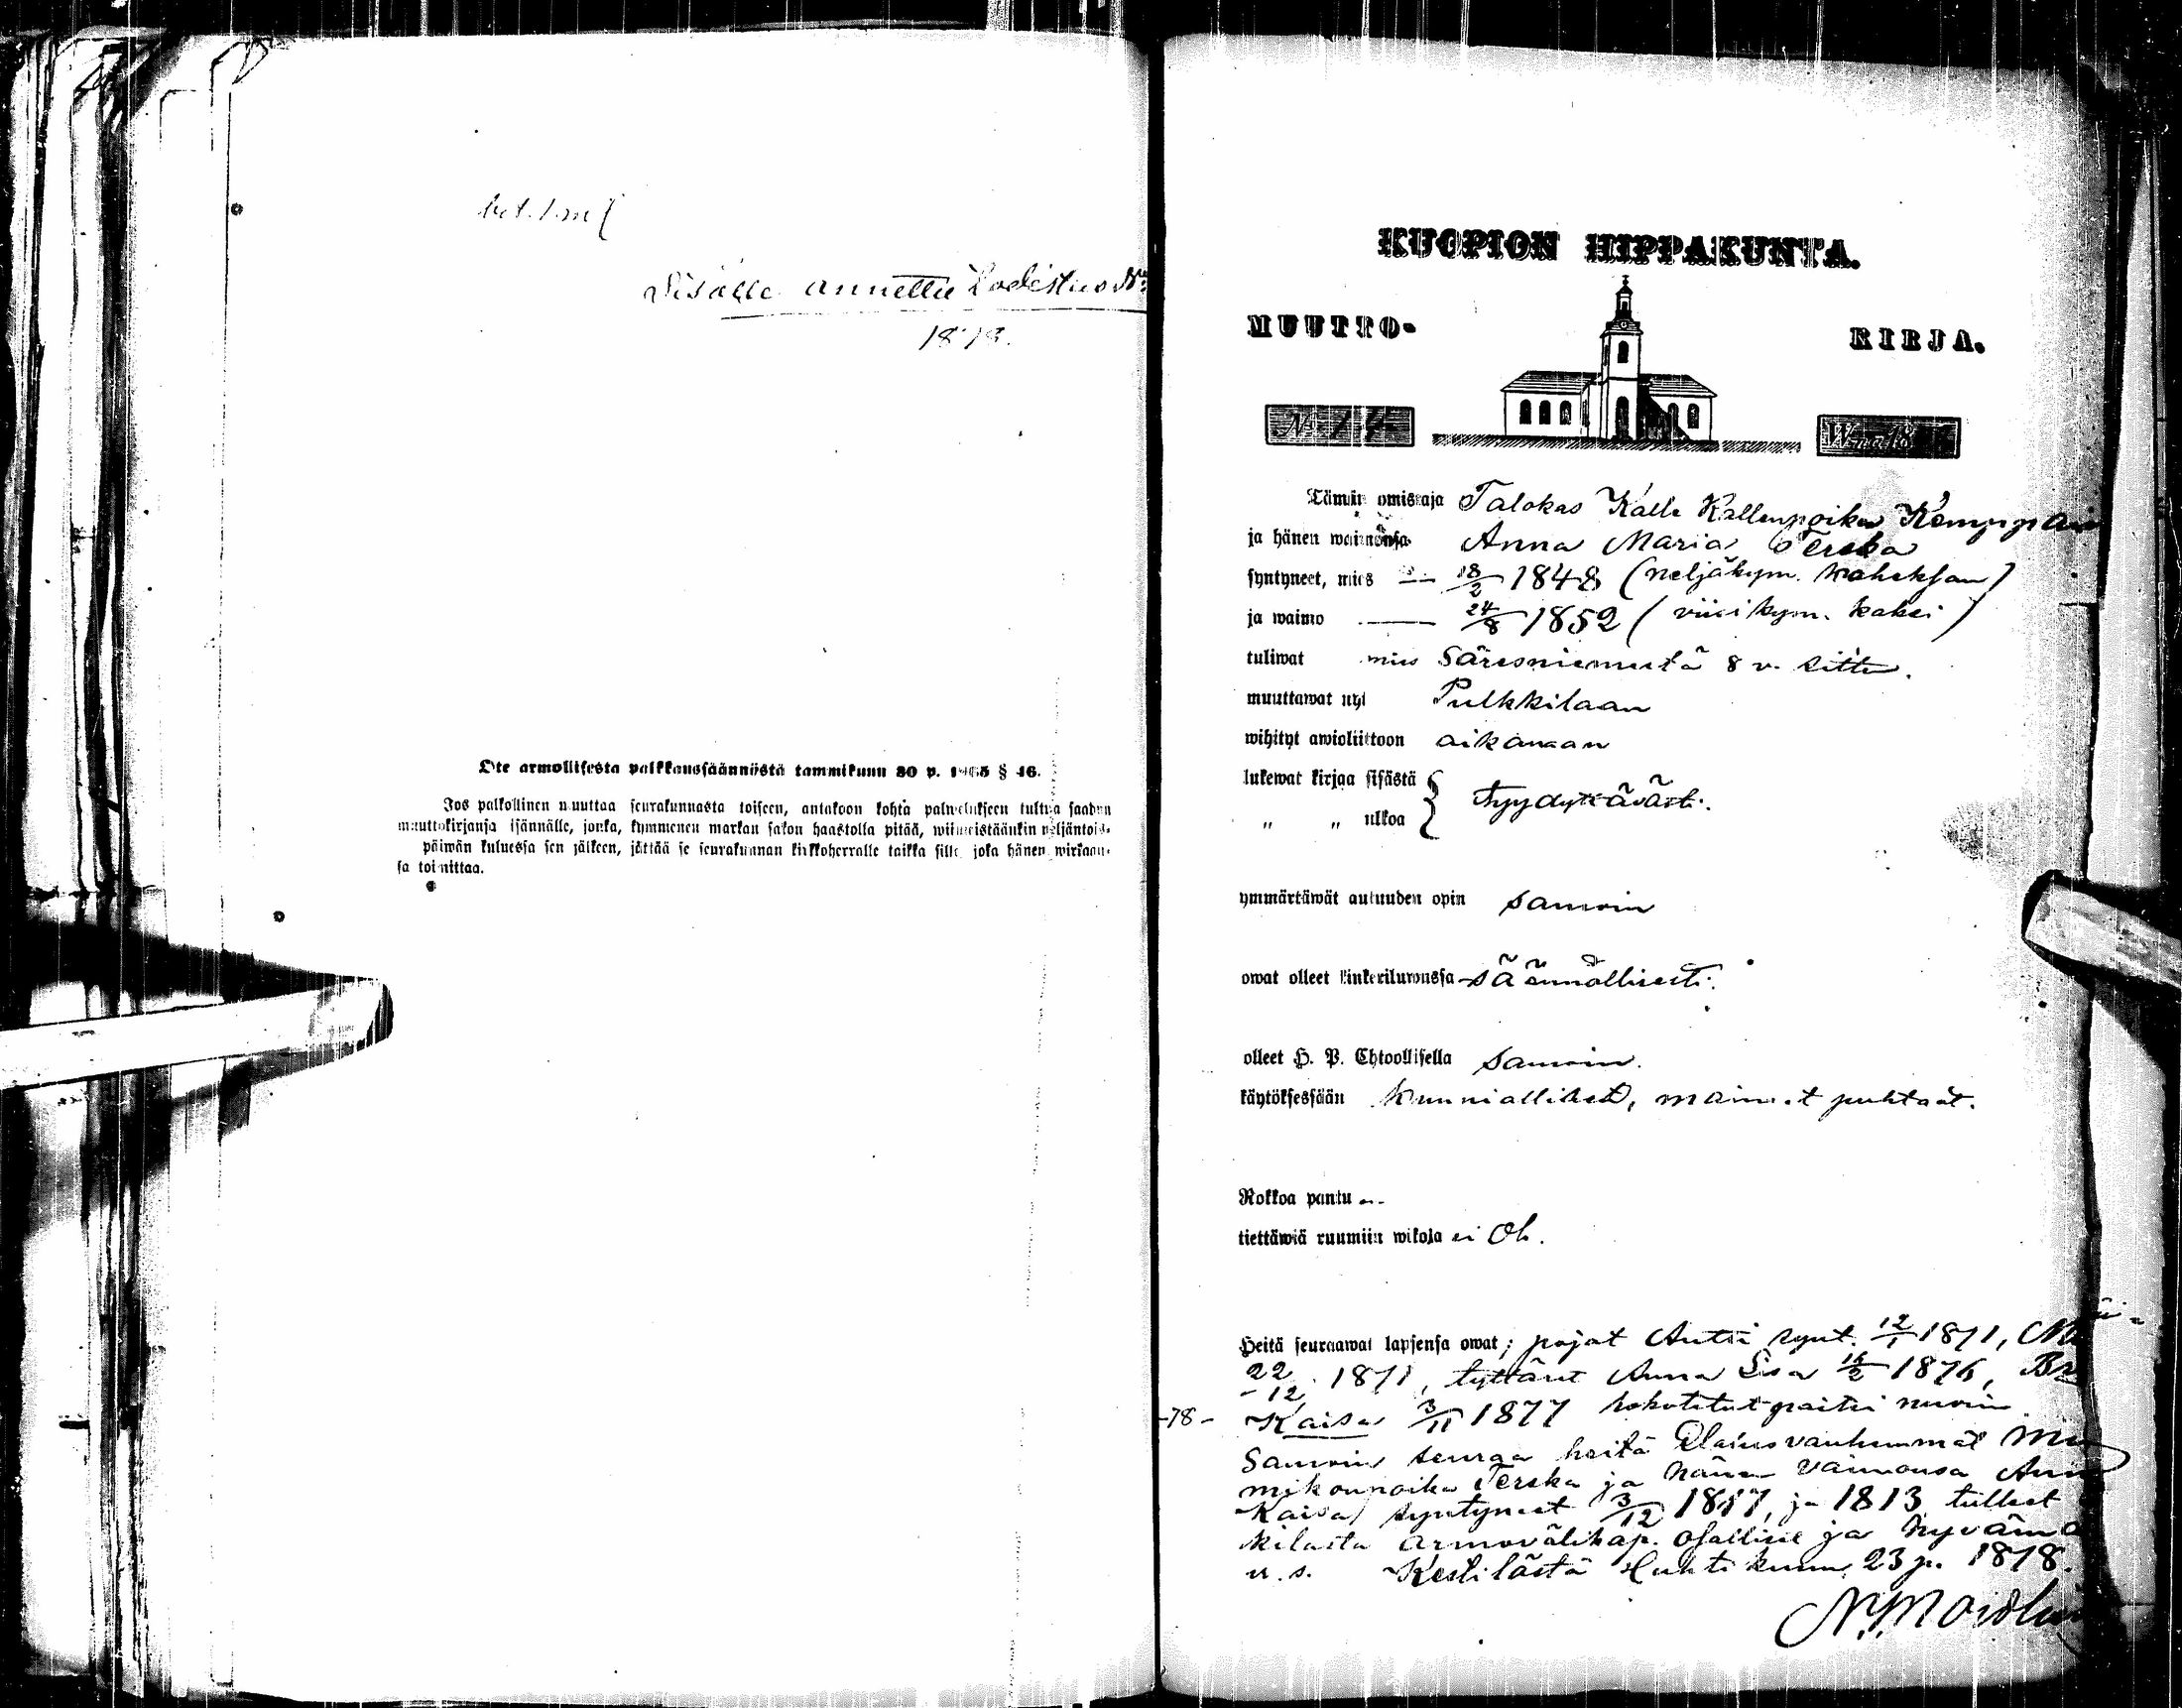 Sisälle annettu Todistus №
1878.
Ote armollisesta palkkaussäännöstä tammikuun 30 p. 1865 § 46.
Jos palkollinen muuttaa seurakunnasta toiseen, antakoon kohta palwelukseen tultua saadun
muuttokirjansa isännälle, jonka, kymmenen markan sakon haastolla pitää, wiimeistäänkin neljäntois-
päiwän kuluessa sen jälkeen, jättää se seurakunnan kirkkoherralle taikka sille joka hänen wirkaan-
sa toimittaa.
KUOPION HIPPAKUNTA.
MUUTTO- KIRJA.
№ Wna 18
Tämän omistaja Talokas Kalle Kallenpoika
ja hänen waimonsa Anna Maria Terska
syntyneet, mies 18/2 1848 (neljäkym. kaheksan)
ja waimo 24/8 1852 (viisikym. kaksi)
tuliwat mies Säresniemestä 8 v. sitte.
muuttawat nyt Pulkkilaan
wihityt awioliittoon aikanaan
lukewat kirjaa sisästä
" " ulkoa } tyydyttävästi.
ymmärtäwät autuuden opin samoin
owat olleet kinkeriluwussa säännöllisesti.
olleet H. P. Ehtoollisella samoin.
käytöksessään kunnialliset, maineet puhtaat.
Rokkoa pantu on
tiettäwiä ruumiin wikoja ei ole.
Heitä seuraawat lapsensa owat; pojat Antti synt. 12/1 1871,
22/12 1871, tyttäret Anna Lisa 1876,
-78- Kaisa 3/11 1877 rokotetut paitsi nuorin
Samoin seuraa heitä Elatusvanhemmat
mikonpoika Terska ja hänen vaimonsa
Kaisa syntyneet 3/12 1817, ja 1813 tulleet
armovälikap. osalliset ja
u. s. Kestilästä Huhtikuun 23 p. 1878.